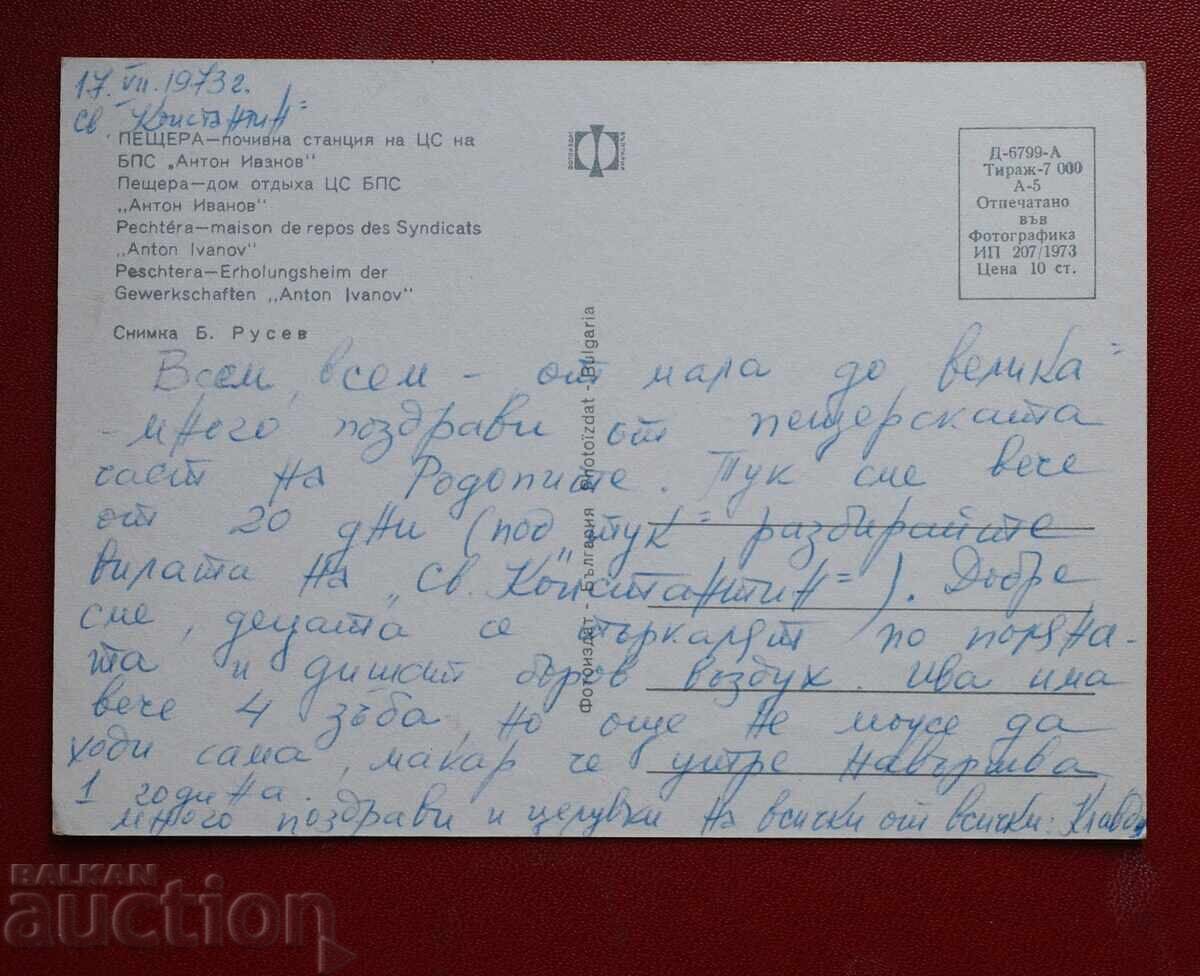 17. VII. 1973 г.
Св "Константин"
ПЕЩЕРА—почивна станция на ЦС на
БПС „Антон Иванов"
Пещера—дом отдыха ЦС БПС
„Антон Иванов"
Pechtéra—maison de repos des Syndicats
„Anton Ivanov"
Peschtera—Erholungsheim der
Gewerkschaften „Anton Ivanov"
Снимка Б. Русев
ФОТОИЗДАТ
БЪЛГАРИЯ
Д-6799-А
Тираж-7 000
А-5
Отпечатано
във
Фотографика
ИП 207/1973
Цена 10 ст.
Фотоиздат - България Photoïzdat - Bulgaria
Всем, всем - от мала до велика"
- много поздрави от пещерската
част на Родопите. Тук сме вече
от 20 дни (под „тук" разбирайте
вилата на „Св. Константин"). Добре
сме, децата се търкалят по поляна-
та и дишат боров въздух. Ива има
вече 4 зъба, но още не може да
ходи сама, макар че утре навършва
1 година.
Много поздрави и целувки на всички от всички:
BALKAN
auction